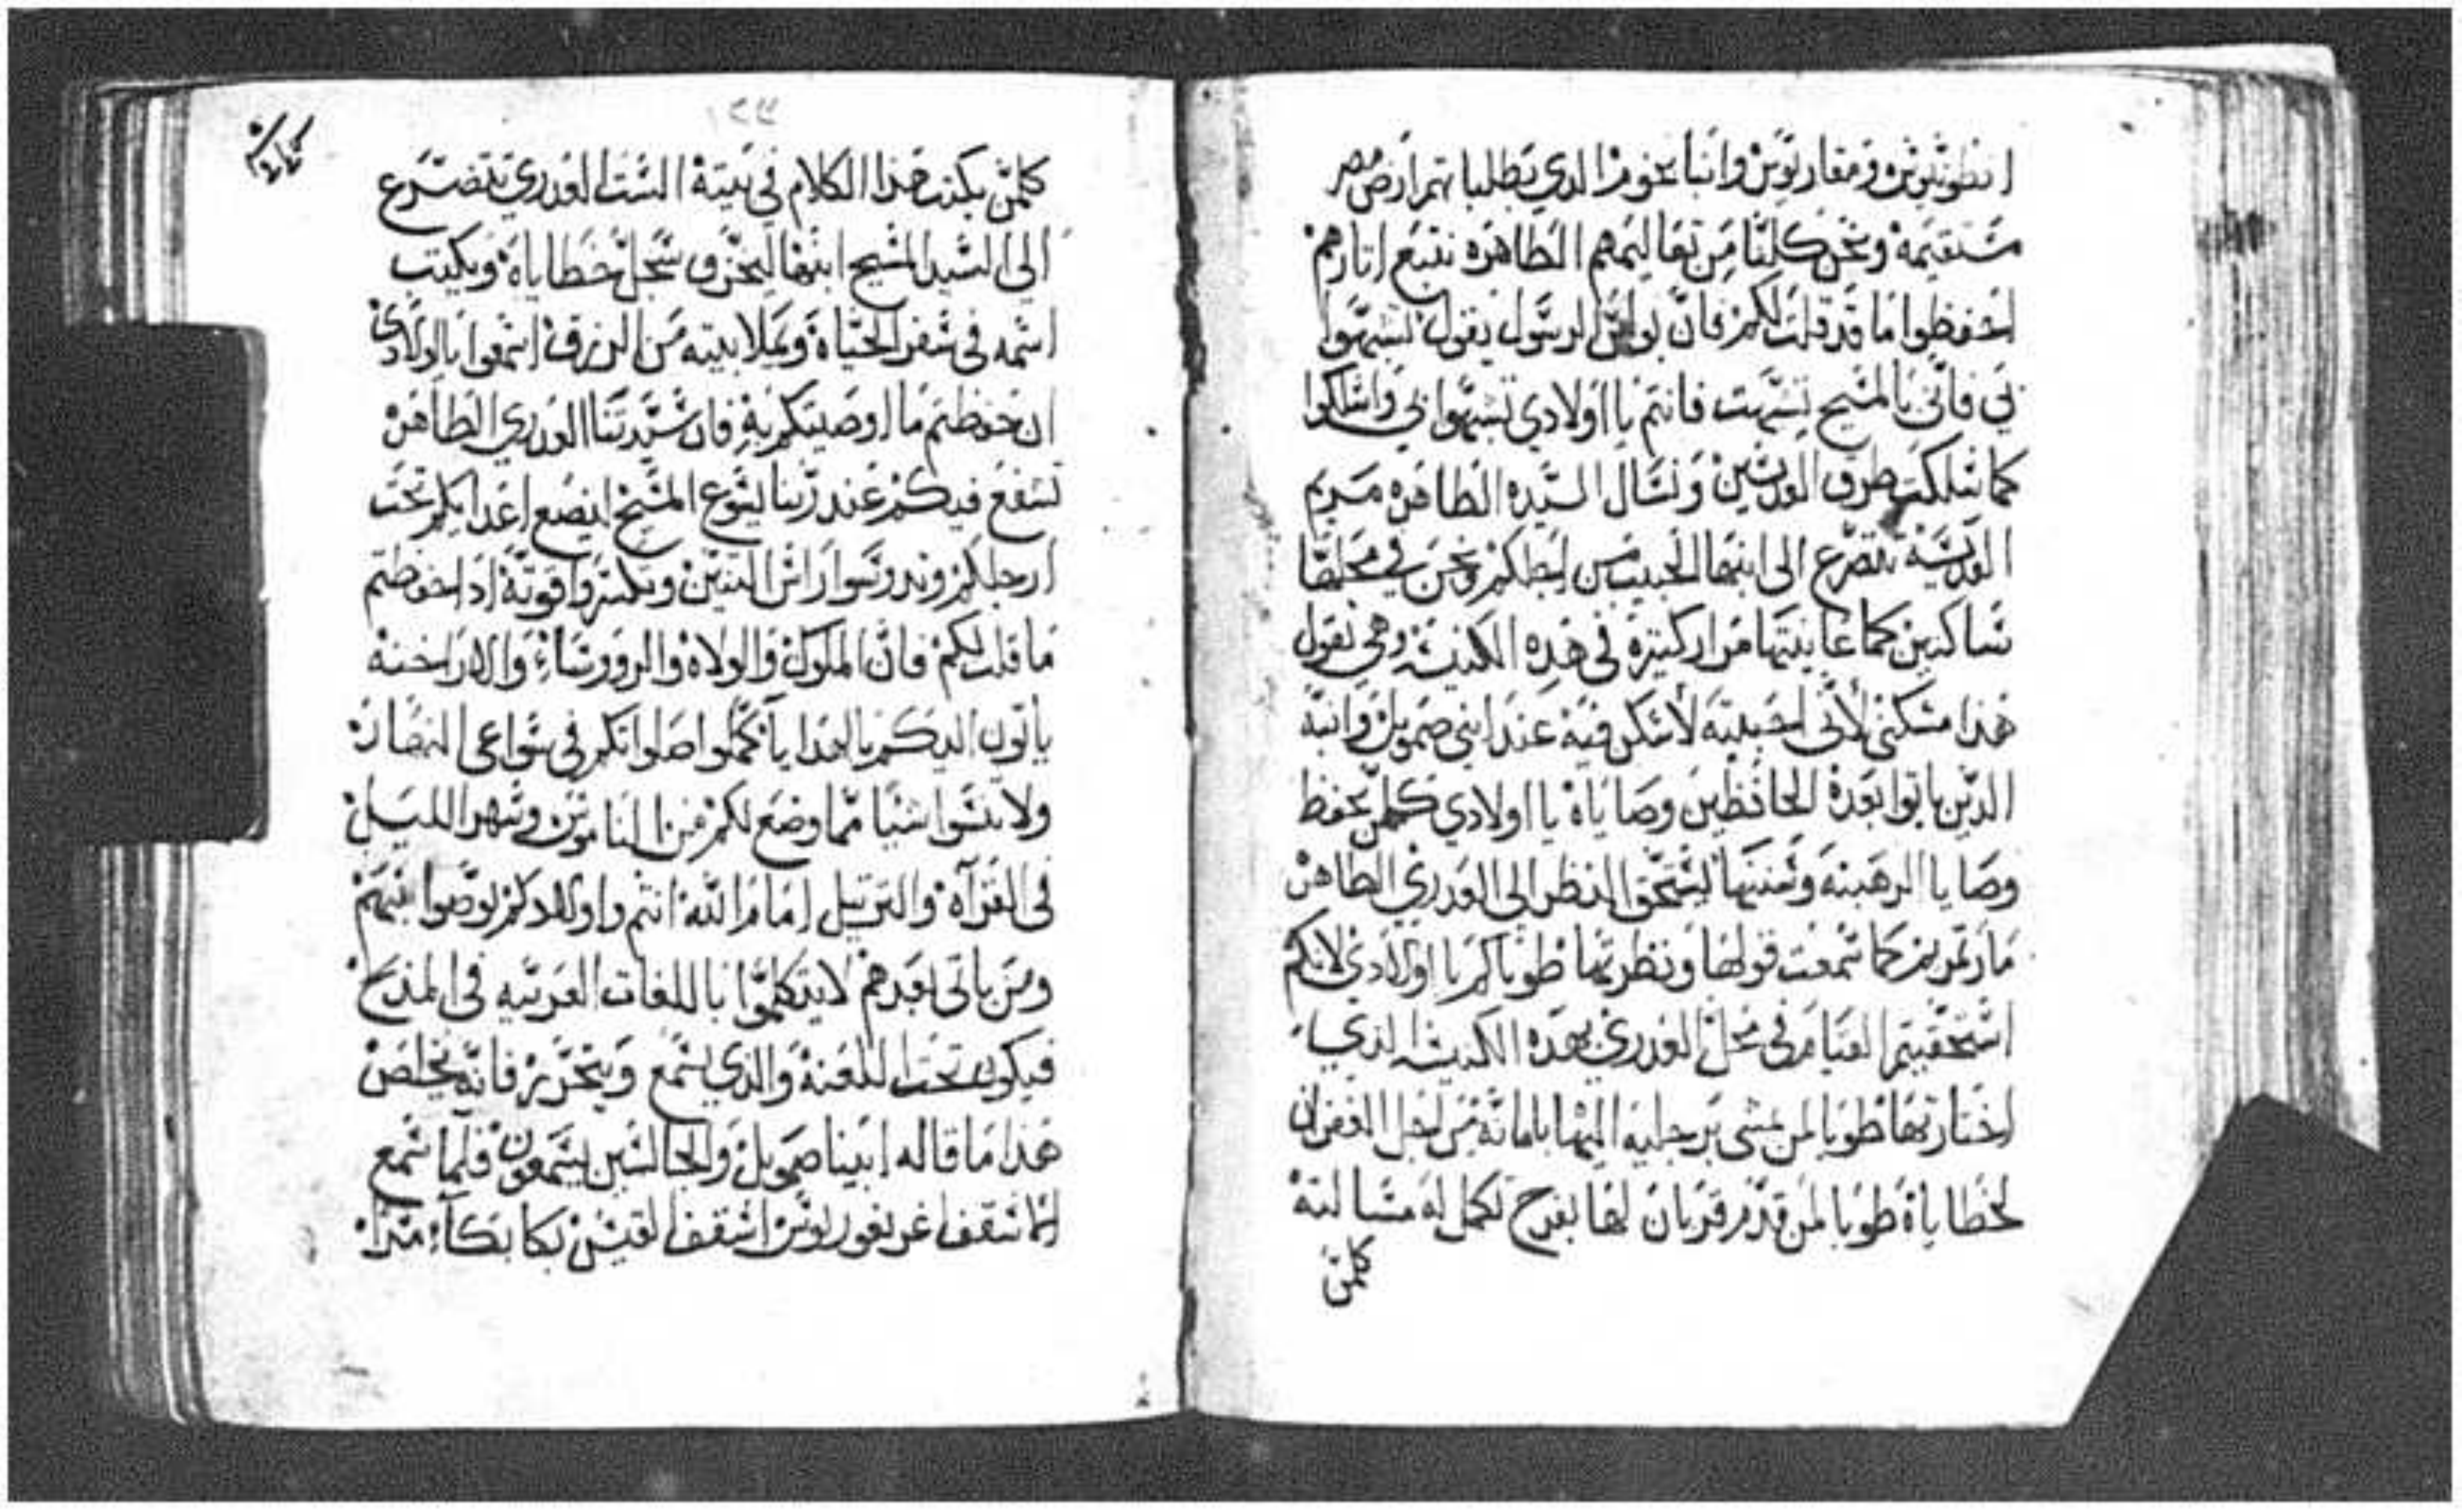 انطونيوس ومقاريوس وانبا بخوم الذي بطلباتهم ارض مصر
مستقيمة ونحن كلنا من تعاليمهم الطاهره نتبع اثارهم
احفظوا ما قد قلت لكم فان بولس الرسول يقول تشبهوا
بي فاني بالمسيح تشبهت فانتم يا اولادي تشبهوا بي واسلكوا
كما سلكت طرق القديسين ونسال السيده الطاهره مريم
القديسة تتضرع الى ابنها الحبيب من اجلكم ونحن في محلها
ساكنين كما عاينتها مرار كتيرة في هذه الكنيسه وهي تقول
هذا مسكني لأني احببته لأسكن فيه عند ابني صمويل وانبه
الذين ياتوا بعدة الحافظين وصاياة يا اولادي كلمن يحفظ
وصايا الرهبنه وسننها ليستحق النظر الي العدري الطاهرة
مارتمريم كما سمعت قولها ونظرتها طوباكم يا اولادي لانكم
استحقيتم القيام في محل العدري بهده الكنيسه الذي
اختارتها طوبا لمن مشى برجليه اليها بامانة من اجل الغفران
لخطاياة طوبا لمن قدم قربان لها بفرح تكمل له مسالته
كلمن
١٤٤
كلمن يكتب هذا الكلام في بيتة الست العدري تتضرع
الى السيد المسيح ابنها ليخزق سجل خطاياة ويكتب
اسمه في سفر الحياة ويملا بيته من الرزق اسمعوا يا اولادي
ان حفظتم ما اوصيتكم به فان ستنا العدري الطاهرة
تشفع فيكم عند ربنا يسوع المسيح ليضع اعدايكم تحت
ارجلكم وتدوسوا راس التنين وتكسروا قوته ادا حفظتم
ما قلت لكم فان الملوك والولاة والروؤساء والاراخنة
ياتون اليكم بالهدايا كملوا صلواتكم في سواعي النهار
ولا تنسوا شيا مما وضع لكم من الناموس وسهر الليل
في القرآه والترتيل امام الله انتم واولادكم توصوا بنيهم
ومن ياتي بعدهم لا يتكلموا باللغات العربيه في المدبح
فيكون تحت اللعنة والذي يسمع ويتحرز فانه يخلص
هذا ما قاله ابينا صمويل والجالسين يسمعون فلما سمع
الاسقف اغريغوريوس اسقف القيس بكا بكآء مرا